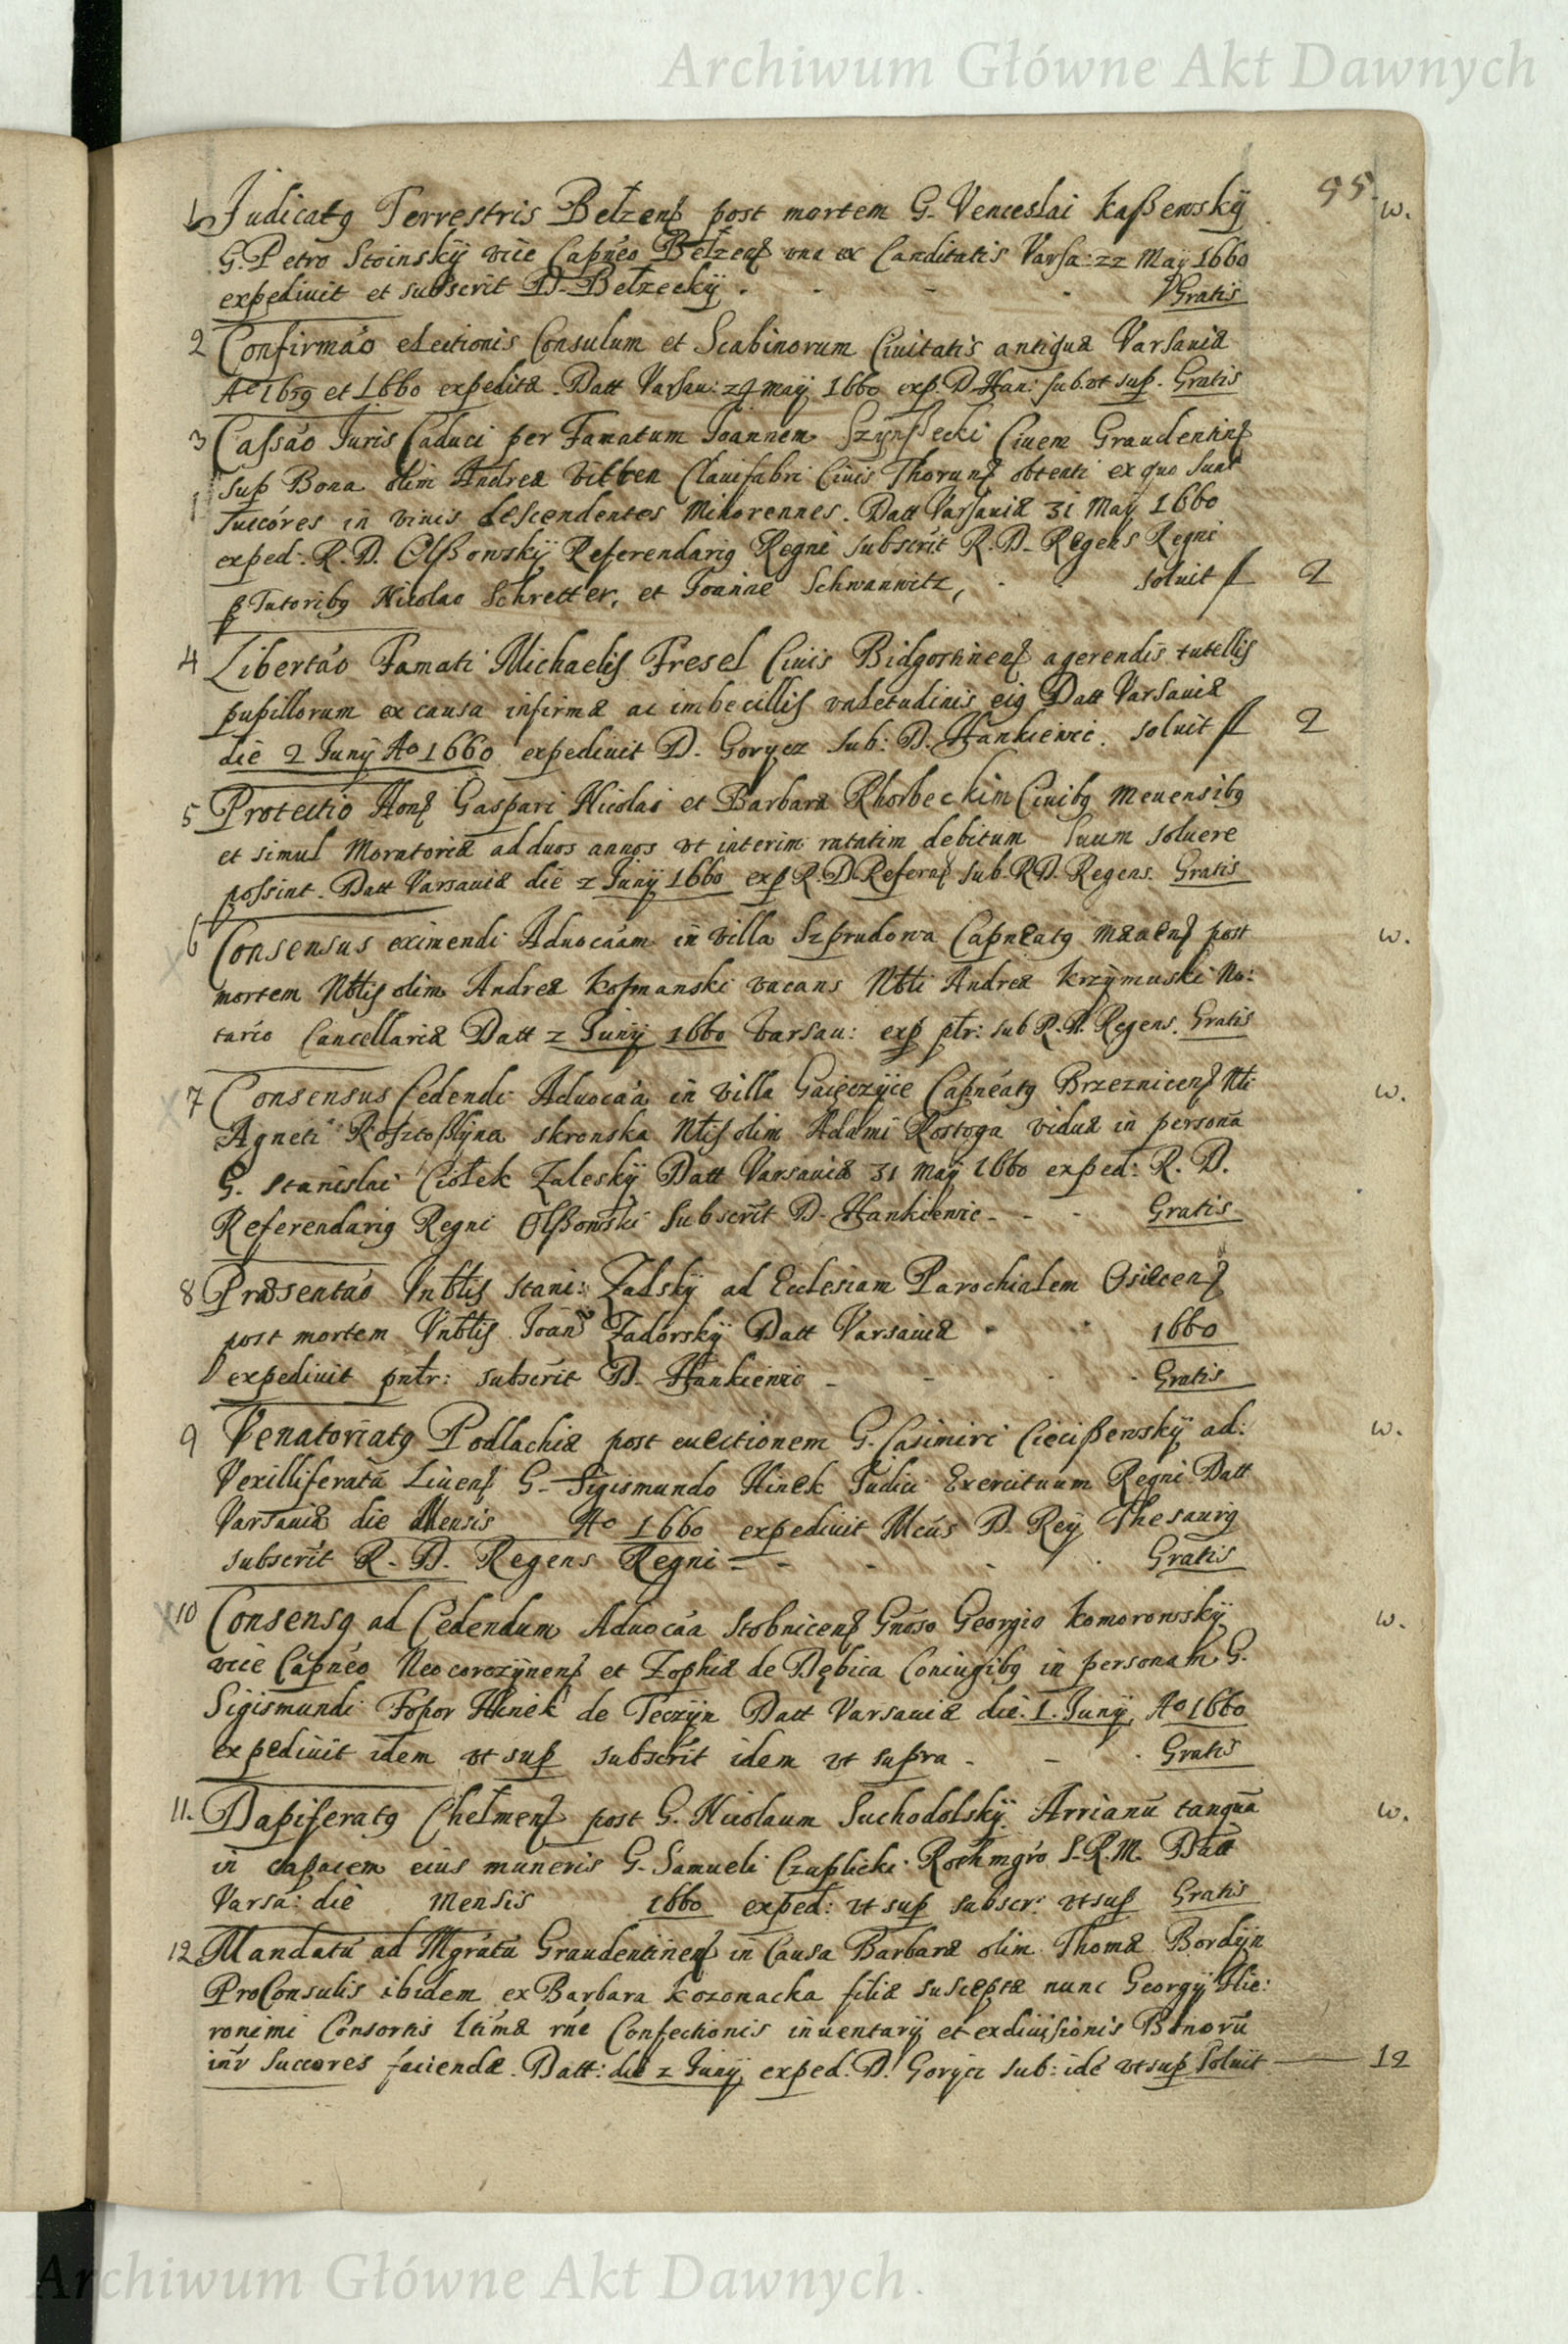 Archiwum Główne Akt Dawnych
95.
1 Judicatg Terrestris Bełzenß post mortem G. Venceslai Kaßewskÿ w.
G. Petro Stoinskÿ vice Capneo Bełzenß una ex Canditatis Varsa: 22 Maÿ 1660
expediuit et subscrit D. Bełzeckÿ. Gratis
2 Confirmáo electionis Consulum et Scabinorum Ciuitatis antiquæ Varsauiæ
Aº 1659 et 1660 expeditæ. Datt Varsau: 29 maÿ 1660 exp. D. Han: sub. vt sup. Gratis
3 Cassáo Juris Caduci per Famatum Joannem Ciuem Graudentinß
sup Bona olim Andreæ Clauifabri Ciuis Thorunß obtenti ex quo sunt
succóres in viuis descendentes Minorennes. Datt Varsauiæ 31 Maÿ 1660
exped: R. D. Olßowskÿ Referendarig Regni subscrit R. D. Regens Regni
p Tutoribg Nicolao Schretter, et Joanne Schwanwitz, soluit f 2
4 Libertáo Famati Michaelis Fresel Ciuis Bidgostinenß agerendis tutellis
pupillorum ex causa infirmæ ac imbecillis valetudinis eig Datt Varsauiæ
die 2 Junÿ Aº 1660 expediuit D. Gorycz sub: D. Hankiewic. soluit f 2
5 Protectio Honß Gaspari Nicolai et Barbaræ Rhorbeckim Ciuibg Meuensibg
et simul Moratoriæ ad duos annos vt interim ratatim debitum suum soluere
possint. Datt Varsauiæ die 2 Junÿ 1660 exp R. D. Referaß sub. RD. Regens. Gratis
6 Consensus eximendi Aduocaám in villa Szprudowa Capneatg post w.
mortem Nbtis olim Andreæ Kopmanski vacans Nbti Andreæ Krzÿmuski No:
tario Cancellariæ Datt 2 Junÿ 1660 Varsau: exp ptr: sub R. D. Regens. Gratis
7 Consensus Cedendi Aduocaá in villa Gaięczÿce Capnéatg Brzeznicenß Nti w.
Agneti skronska Ntis olim Adami Rostoga viduæ in persona
G. Stanislai Ciołek Zaleskÿ Datt Varsauiæ 31 Maÿ 1660 exped: R. D.
Referendarig Regni Olßowski Subscrit D. Hankiewic - - Gratis
8 Præsentáo Vnbtis Stani: Zalskÿ ad Ecclesiam Parochialem Osiecenß
post mortem Vnbtis Joañ Zadorskÿ Datt Varsauiæ 1660
expediuit pntr: subscrit D. Hankiewic - Gratis
9 Venatoriatg Podlachiæ post euectionem G. Casimiri Ciecißewskÿ ad: w.
Vexilliferatũ Liuenß G. Sigismundo Hinek Judici Exercituum Regni Datt
Varsauiæ die Mensis Aº 1660 expediuit Mcús D. Reÿ Thesaurig
subscrit R. D. Regens Regni = - - Gratis
10 Consensg ad Cedendum Aduocáa Stobnicenß Gnõso Georgio Komorowskÿ w.
vice Capnéo Neocorczÿnenß et Zophiæ de Dębica Coniugibg in personam G.
Sigismundi Topor Hinek de Teczÿn Datt Varsauiæ die. 1. Junÿ, Aº 1660
expediuit idem vt sup subscrit idem vt supra - - Gratis
11. Dapiferatg Chełmenß post G. Nicolaum Suchodolskÿ Arrianũ tanquã w.
in capacem eius muneris G. Samueli Czaplicki Rothmgró S. R. M. Datt
Varsa: die mensis 1660 exped: vt sup subscr: vt sup Gratis
12 Mandatũ ad Mgratũ Graudentinenß in Causa Barbaræ olim Thomæ Bordÿn
ProConsulis ibidem ex Barbara Kozonacka filiæ susceptæ nunc Georgÿ Hie:
ronimi Consortis ltimæ rñe Confectionis inuentarÿ et exdiuisionis Bonorũ
intr Succores faciendæ. Datt: die 2 Junÿ exped. D. Gorÿcz sub: idé vt sup Soluit 12
Archiwum Główne Akt Dawnych